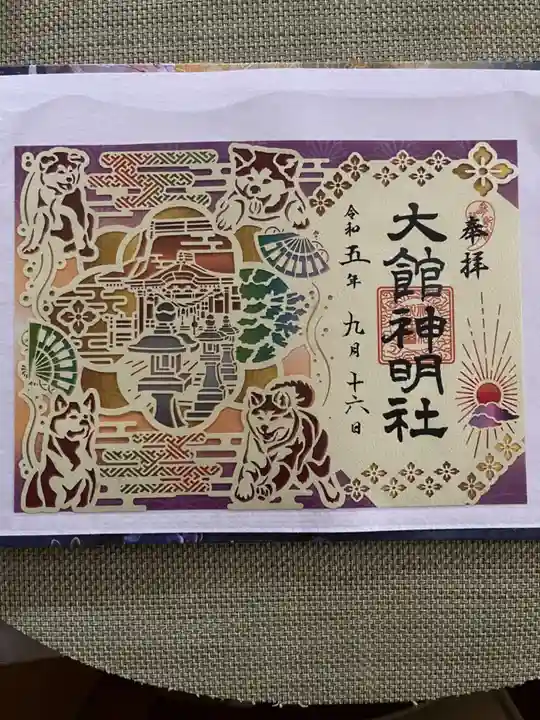 奉拝
大館神明社
令和五年 九月十六日